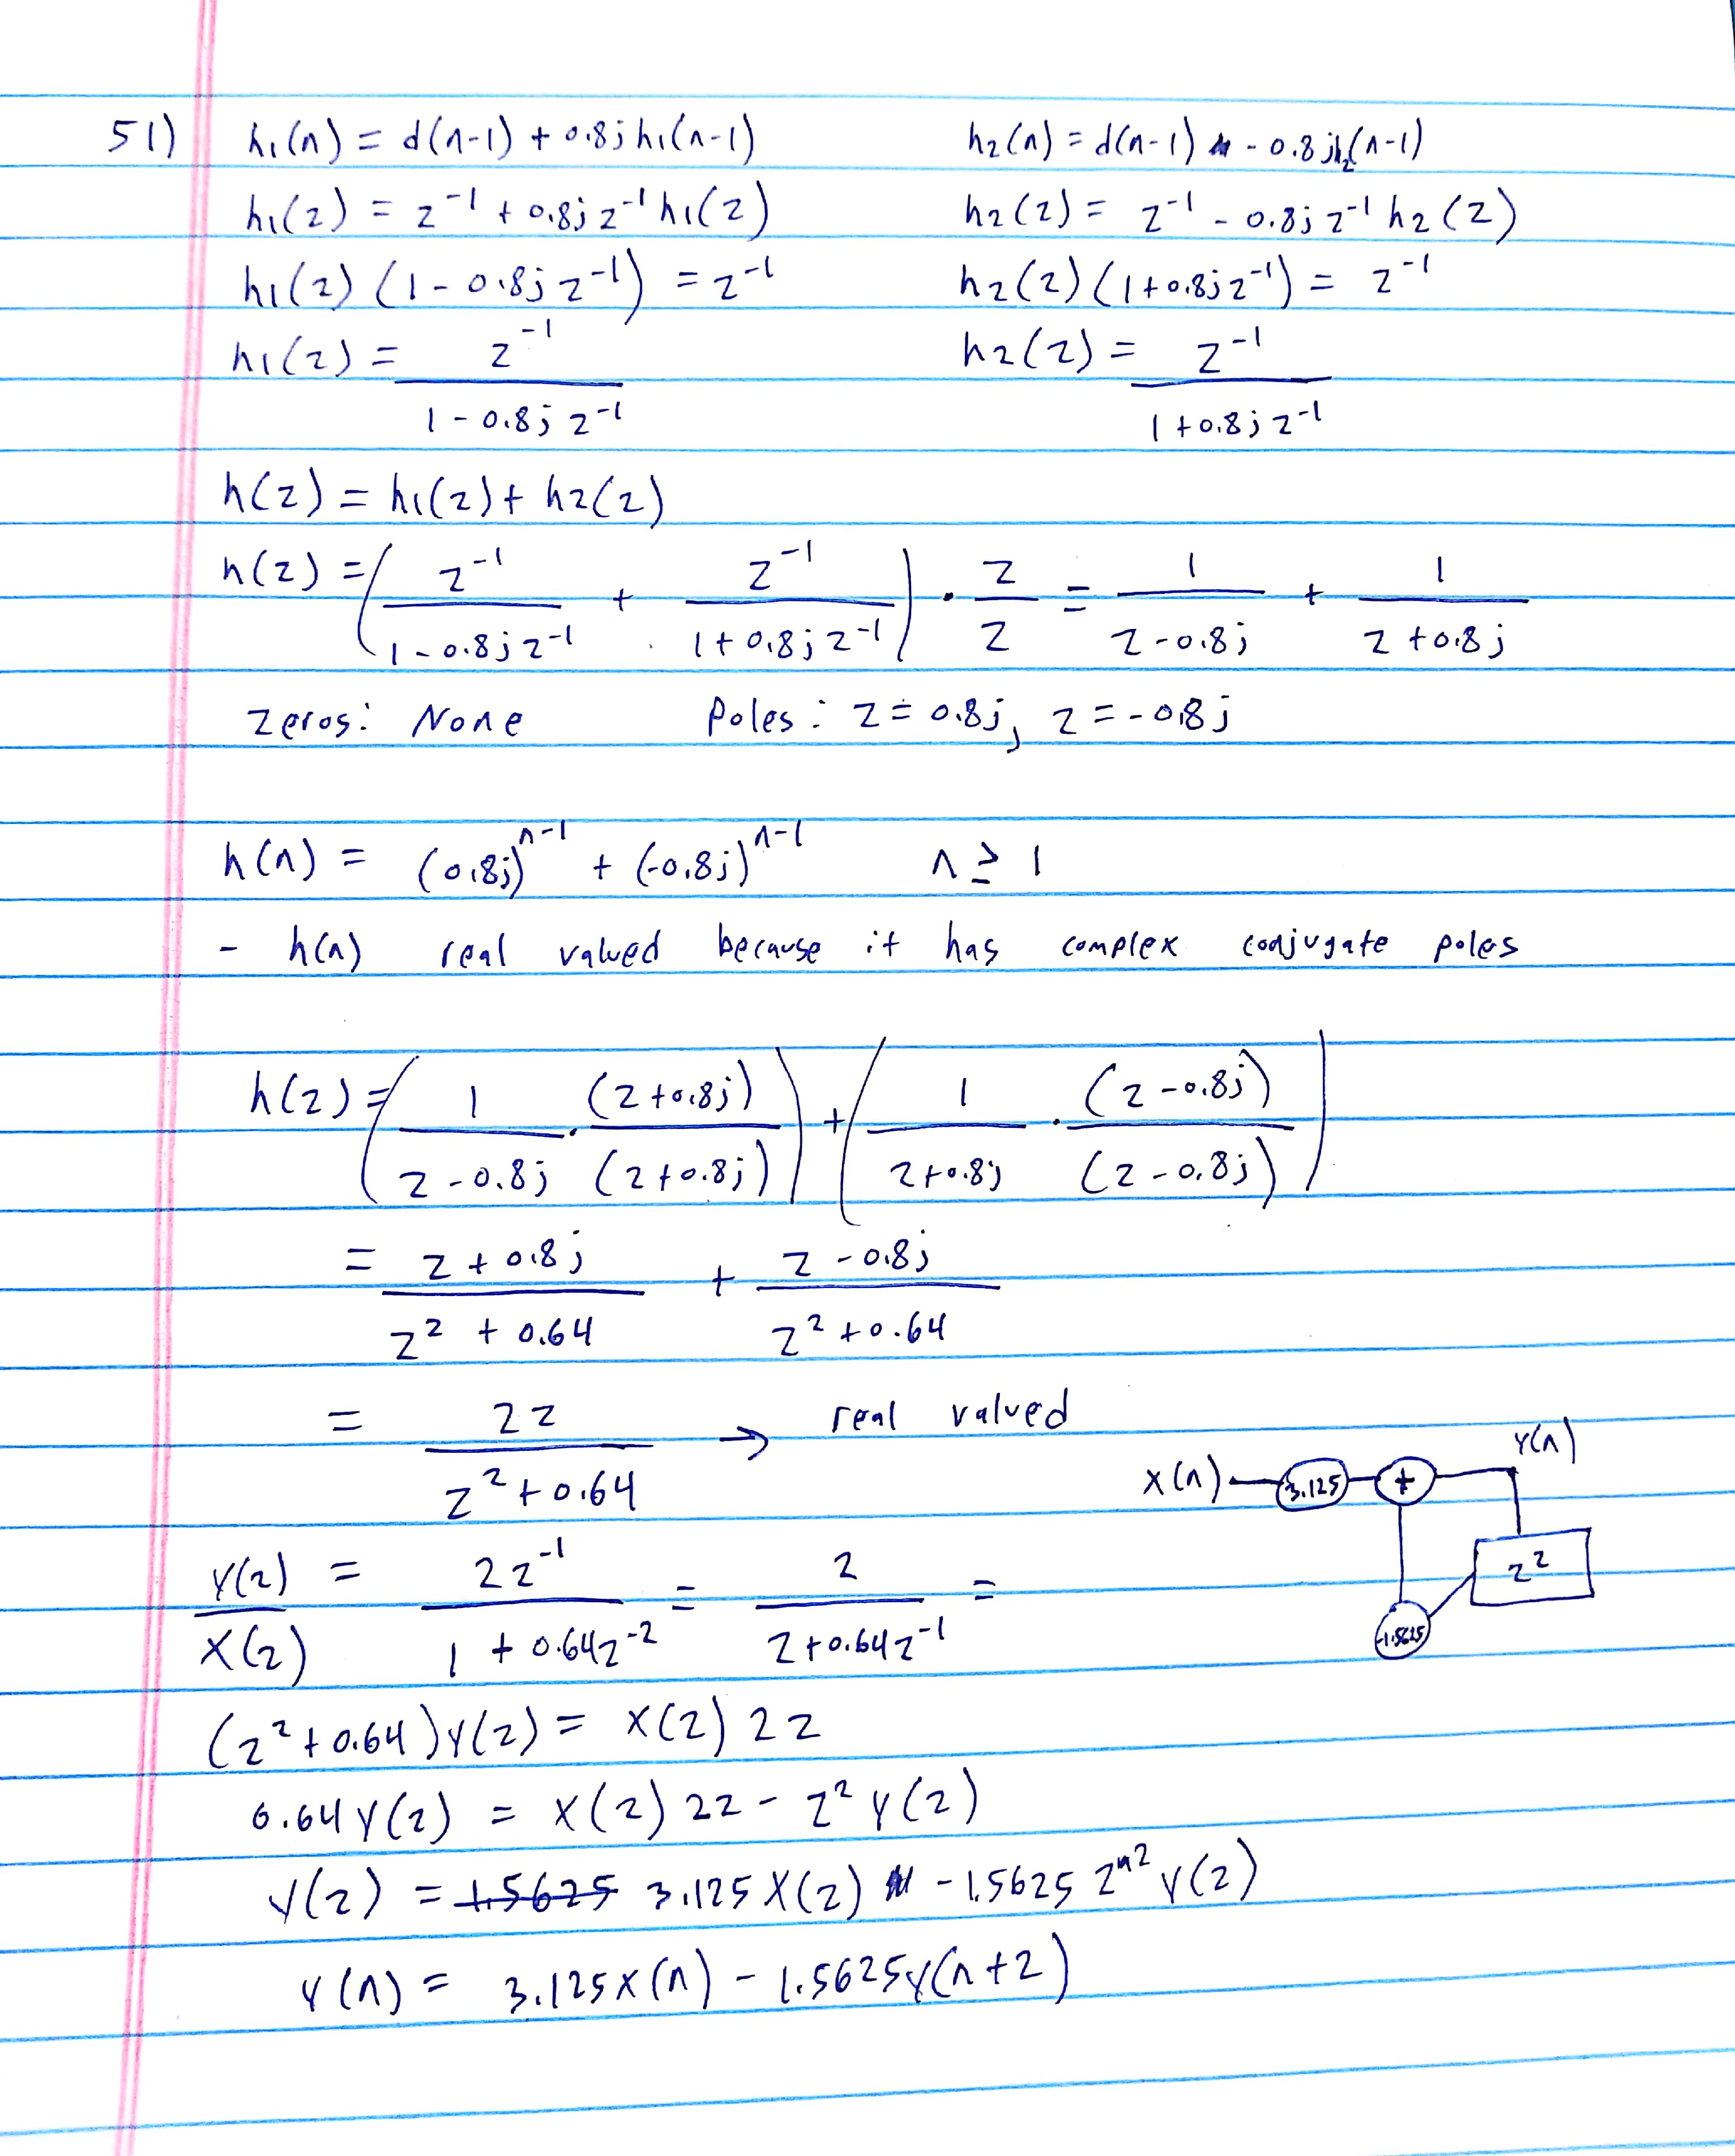 51) h1(n) = d(n-1) + 0.8j h1(n-1)    h2(n) = d(n-1) - 0.8 jh2(n-1)
h1(z) = z^-1 + 0.8j z^-1 h1(z)    h2(z) = z^-1 - 0.8j z^-1 h2(z)
h1(z) (1 - 0.8j z^-1) = z^-1    h2(z) (1+0.8j z^-1) = z^-1
h1(z) = z^-1 / (1 - 0.8j z^-1)    h2(z) = z^-1 / (1+0.8j z^-1)
h(z) = h1(z) + h2(z)
h(z) = (z^-1 / (1-0.8j z^-1) + z^-1 / (1+0.8j z^-1)) · z/z = 1 / (z-0.8j) + 1 / (z+0.8j)
zeros: None    Poles: z = 0.8j, z = -0.8j
h(n) = (0.8j)^n-1 + (-0.8j)^n-1    n ≥ 1
- h(n) real valued because it has complex conjugate poles
h(z) = (1 / (z-0.8j) · (z+0.8j) / (z+0.8j)) + (1 / (z+0.8j) · (z-0.8j) / (z-0.8j))
= (z + 0.8j) / (z^2 + 0.64) + (z - 0.8j) / (z^2 + 0.64)
= 2z / (z^2 + 0.64) → real valued
x(n) 3.125 + y(n)
z^2
-1.5625
Y(z) / X(z) = 2z^-1 / (1 + 0.64z^-2) = 2 / (z+0.64z^-1) =
(z^2 + 0.64) Y(z) = X(z) 2z
0.64 Y(z) = X(z) 2z - z^2 Y(z)
Y(z) = 1.5625 3.125 X(z) - 1.5625 z^2 Y(z)
Y(n) = 3.125x(n) - 1.5625y(n+2)